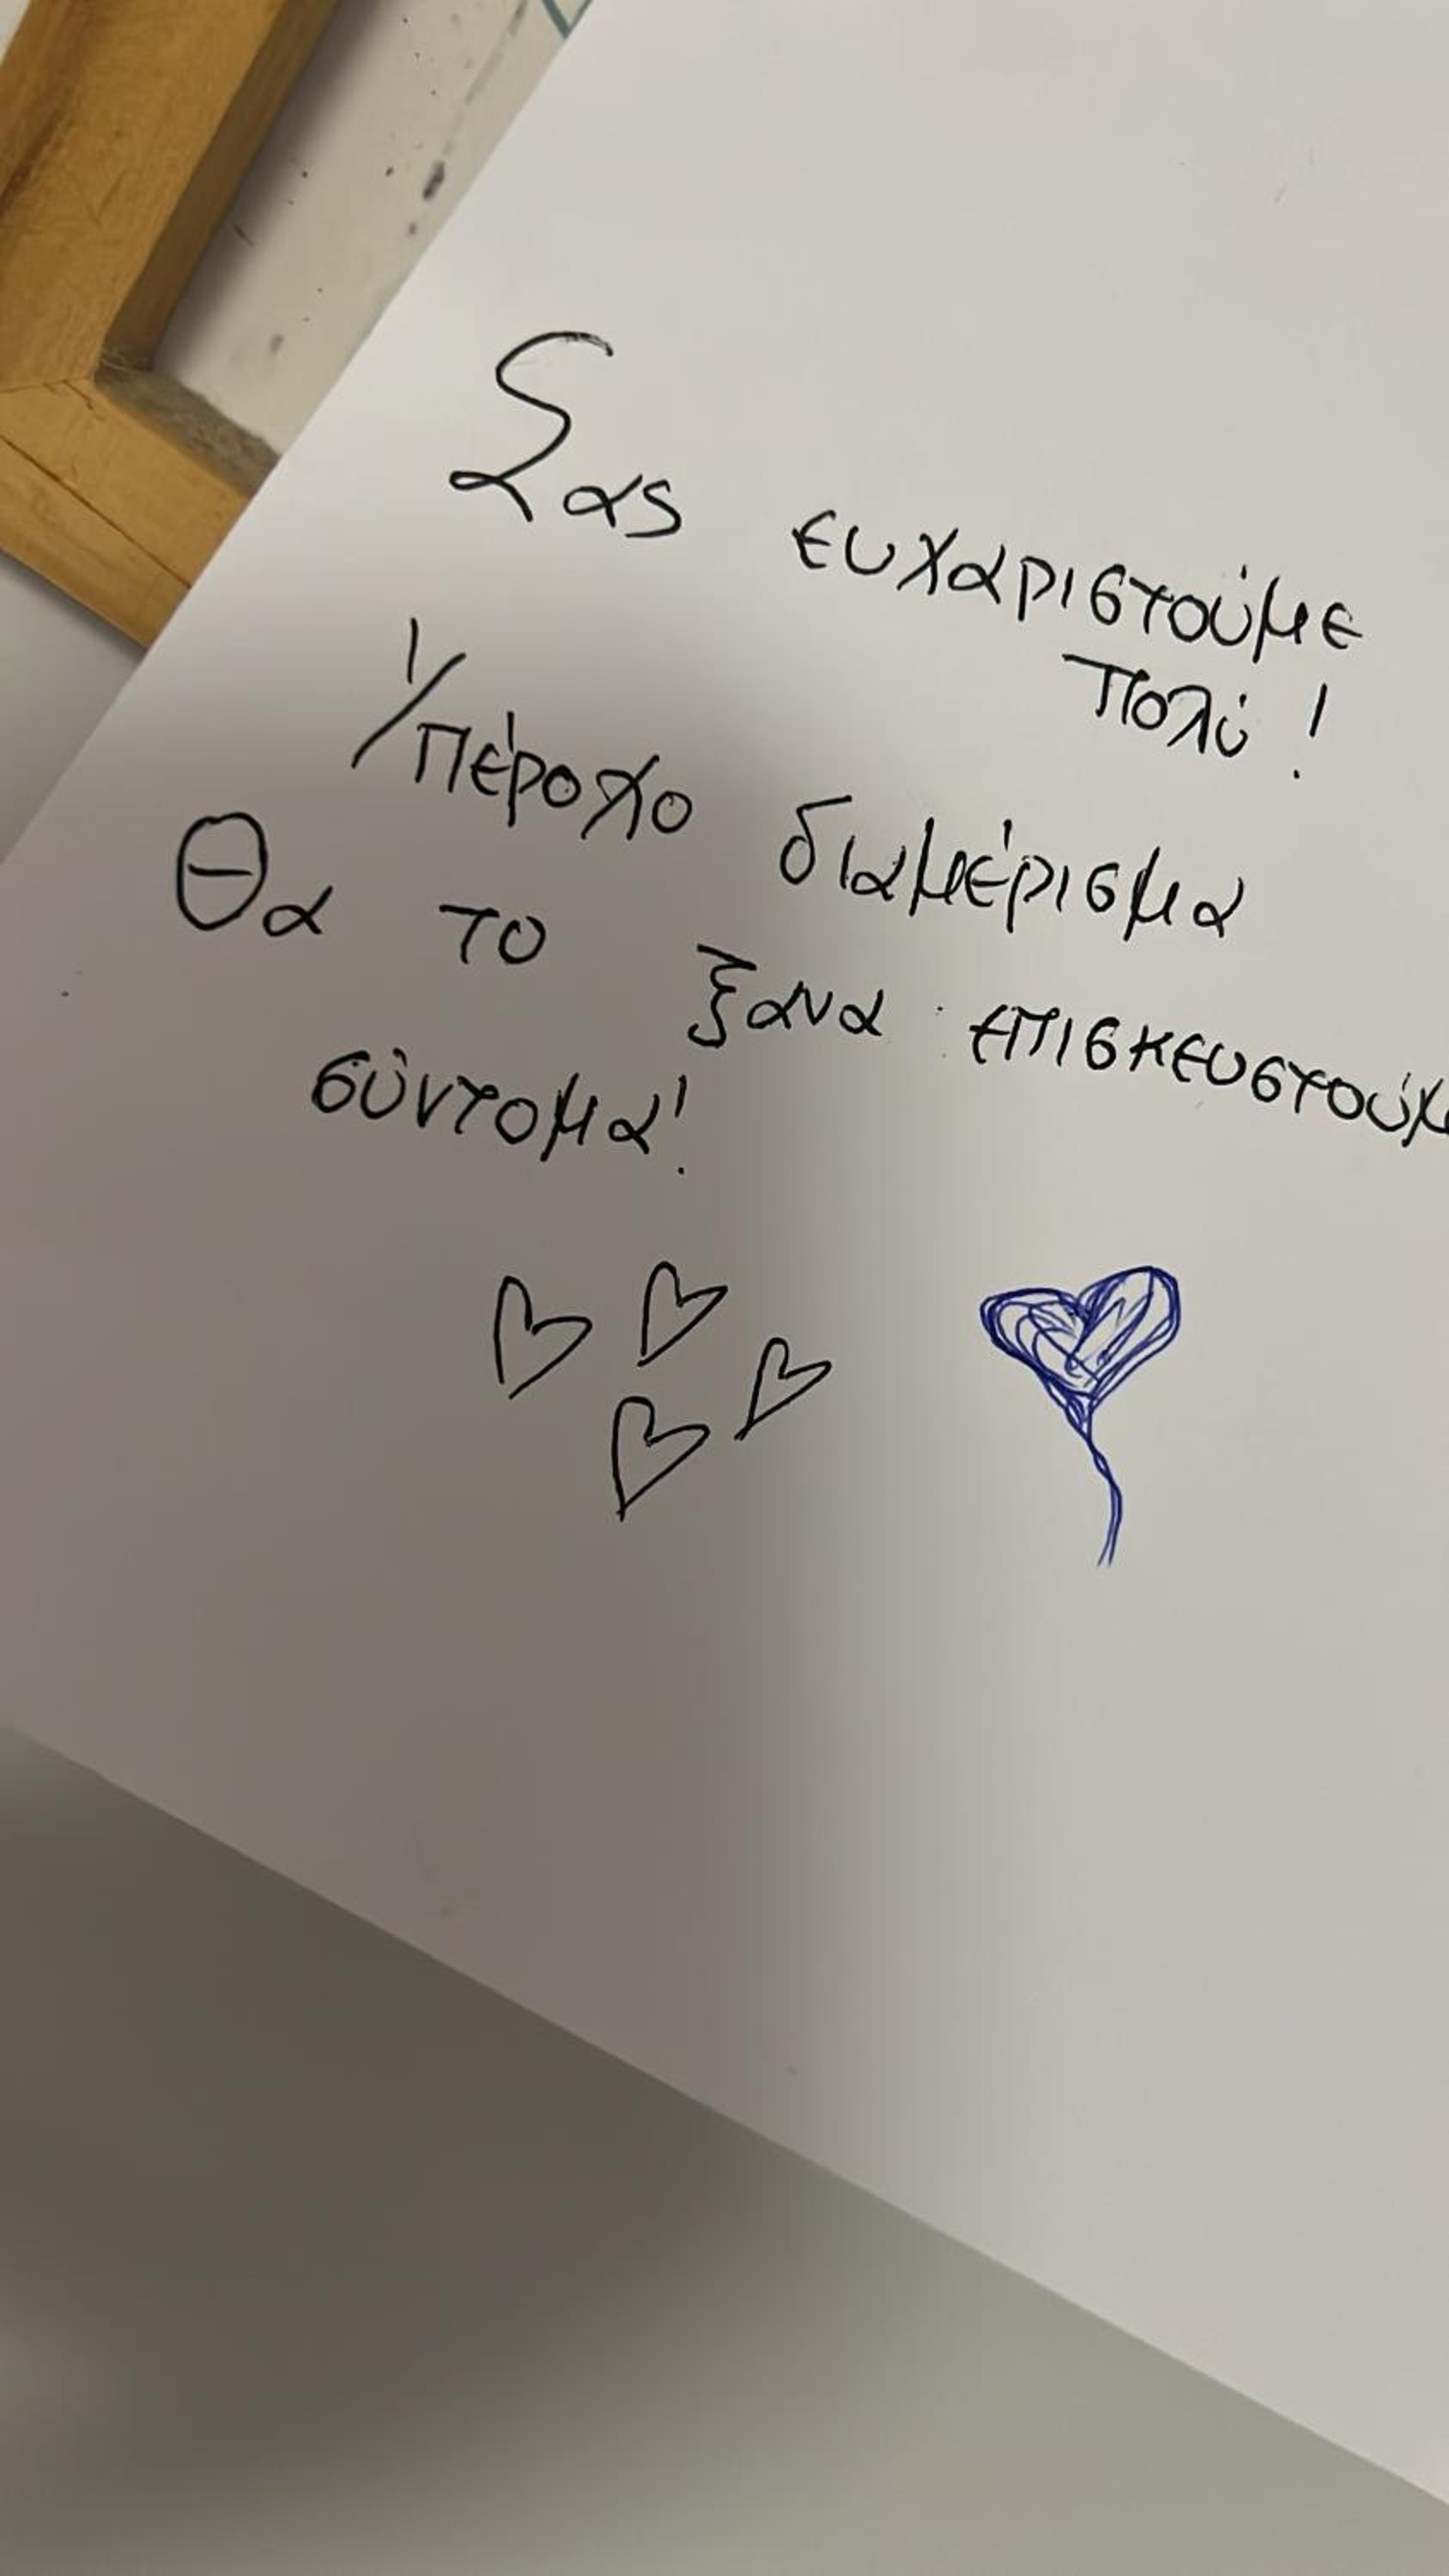 Σας ευχαριστούμε
πολύ!
Υπέροχο διαμέρισμα
Θα το ξανα επισκευστούμ
σύντομα!